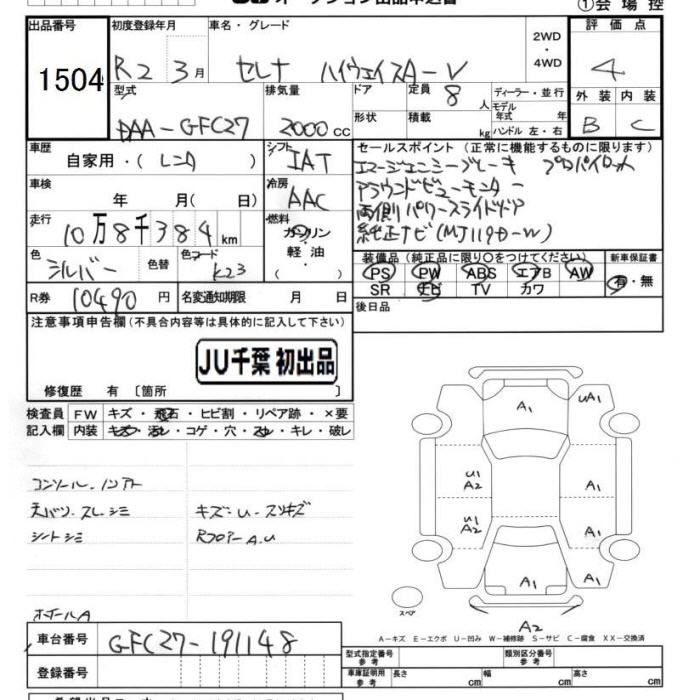 ①会場控
出品番号 初度登録年月 車名・グレード 2WD・4WD 評価点
1504 R2 3月 セレナ ハイウェイスターV 4
型式 排気量 ドア 定員 8人 ディーラー・並行 外装 内装
DAA-GFC27 2000cc 形状 積載 kg モデル年式 年式 ハンドル 左・右 B C
車歴 自家用・( レンタ ) シフト IAT セールスポイント(正常に機能するものに限ります)
エマージェンシーブレーキ プロパイロット
車検 年 月( 日) 冷房 AAC アラウンドビューモニター
走行 10万8千384km 燃料 ガソリン・軽油・( ) 両側パワースライドドア
純正ナビ(MJ119D-W)
色 シルバー 色替 色コード K23 装備品(純正品に限り○をつけてください) 新車保証書
PS PW ABS エアB AW 有・無
SR ナビ TV カワ
R券 10490円 名変通知期限 月 日 後日品
注意事項申告欄(不具合内容等は具体的に記入して下さい)
JU千葉 初出品
修復歴 有 〔箇所 〕
検査員 FW キズ・飛石・ヒビ割・リペア跡・×要
記入欄 内装 キズ・汚レ・コゲ・穴・スレ・キレ・破レ
A1 UA1
U1 A2 A1
U1 A2 A1
A1 A1
スペア
A2
天バリ・スレ・シミ キズ・U・スリキズ
シートシミ RフロアーA.U
ホイールA
A-キズ E-エクボ U-凹み W-補修跡 S-サビ C-腐食 XX-交換済
車台番号 GFC27-191148
登録番号
型式指定番号 参考 類別区分番号 参考
車庫証明用 参考 長さ 幅 高さ